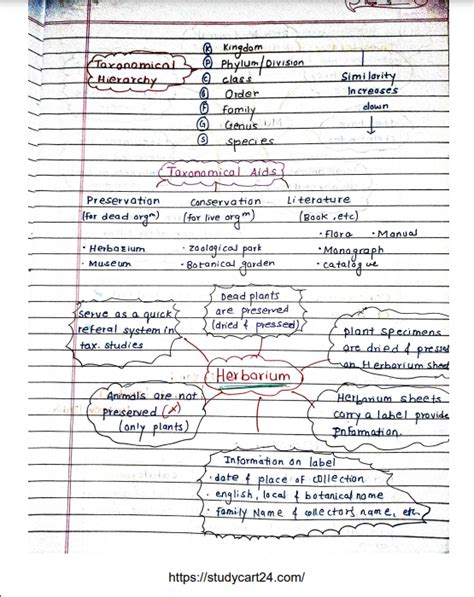 Taxonomical
Hierarchy
K Kingdom
P Phylum/Division
C class
O Order
F family
G Genus
S species
Similarity
Increases
down
Taxonomical Aids
Preservation
(for dead orgm)
• Herbarium
• Museum
Conservation
(for live orgm)
• Zoological park
• Botanical garden
Literature
(Book, etc)
• Flora • Manual
• Monagraph
• catalogue
Dead plants
are preserved
(dried & pressed)
serve as a quick
referal system in
tax. studies
plant specimens
are dried & pressed
on Herbarium sheet
Herbarium
Animals are not
preserved (x)
(only plants)
Herbarium sheets
carry a label provide
Information.
Information on label
• date & place of collection
• english, local & botanical name
• family Name & collectors name, etc.
https://studycart24.com/